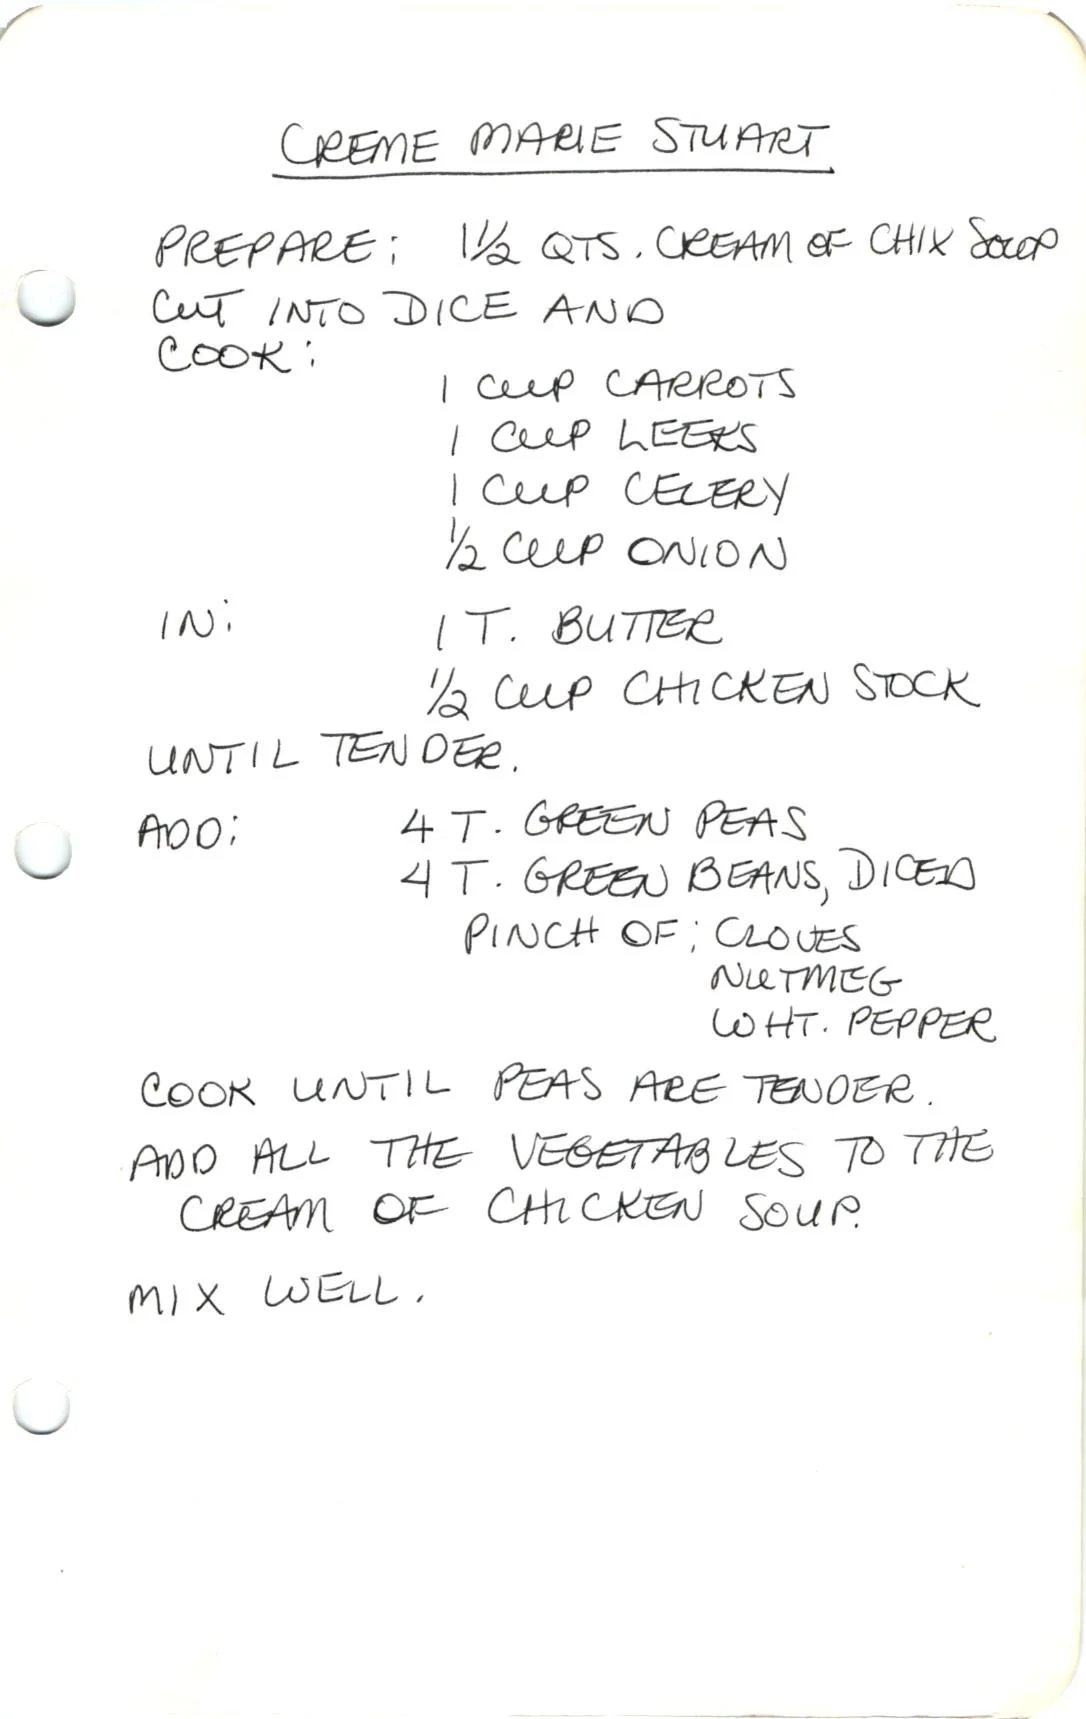 CREME MARIE STUART
PREPARE: 1½ QTS. CREAM OF CHIX SOUP
CUT INTO DICE AND
COOK:
1 CUP CARROTS
1 CUP LEEKS
1 CUP CELERY
½ CUP ONION
IN: 1 T. BUTTER
½ CUP CHICKEN STOCK
UNTIL TENDER.
ADD: 4 T. GREEN PEAS
4 T. GREEN BEANS, DICED
PINCH OF: CLOVES
NUTMEG
WHT. PEPPER
COOK UNTIL PEAS ARE TENDER.
ADD ALL THE VEGETABLES TO THE
CREAM OF CHICKEN SOUP.
MIX WELL.